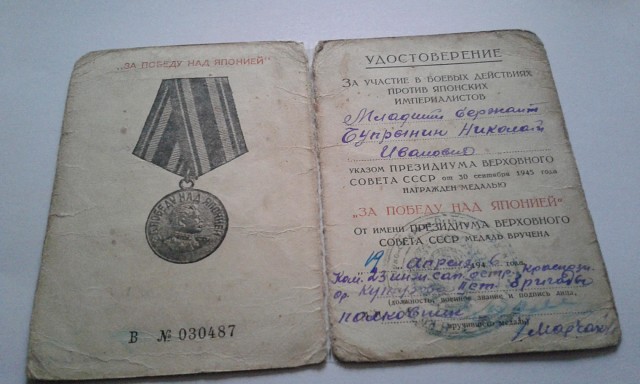 „ЗА ПОБЕДУ НАД ЯПОНИЕЙ"
ЗА ПОБЕДУ НАД ЯПОНИЕЙ
В № 030487
УДОСТОВЕРЕНИЕ
ЗА УЧАСТИЕ В БОЕВЫХ ДЕЙСТВИЯХ
ПРОТИВ ЯПОНСКИХ
ИМПЕРИАЛИСТОВ
Младший сержант
Бупрынин Николай
Иванович
УКАЗОМ ПРЕЗИДИУМА ВЕРХОВНОГО
СОВЕТА СССР от 30 сентября 1945 года
НАГРАЖДЕН МЕДАЛЬЮ
„ЗА ПОБЕДУ НАД ЯПОНИЕЙ"
ОТ ИМЕНИ ПРЕЗИДИУМА ВЕРХОВНОГО
СОВЕТА СССР МЕДАЛЬ ВРУЧЕНА
19 апреля 1946 года
Ком. 23 инж. сап. Краснозн.
ор. Кутузова бригады
(должность, воинское звание и подпись лица,
полковник
вручившего медаль)